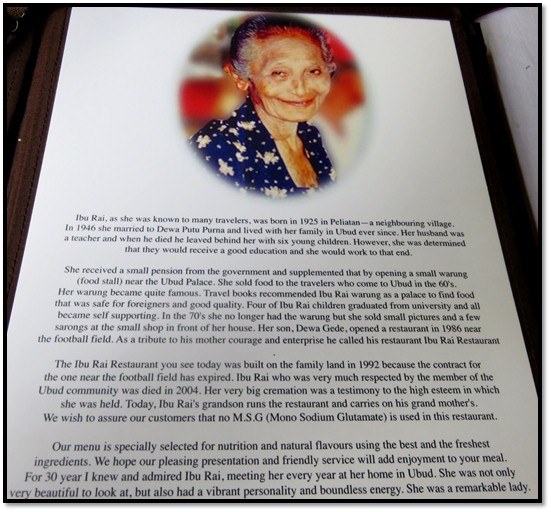 Ibu Rai, as she was known to many travelers, was born in 1925 in Peliatan—a neighbouring village.
In 1946 she married to Dewa Putu Purna and lived with her family in Ubud ever since. Her husband was
a teacher and when he died he leaved behind her with six young children. However, she was determined
that they would receive a good education and she would work to that end.
She received a small pension from the government and supplemented that by opening a small warung
(food stall) near the Ubud Palace. She sold food to the travelers who come to Ubud in the 60's.
Her warung became quite famous. Travel books recommended Ibu Rai warung as a palace to find food
that was safe for foreigners and good quality. Four of Ibu Rai children graduated from university and all
became self supporting. In the 70's she no longer had the warung but she sold small pictures and a few
sarongs at the small shop in front of her house. Her son, Dewa Gede, opened a restaurant in 1986 near
the football field. As a tribute to his mother courage and enterprise he called his restaurant Ibu Rai Restaurant
The Ibu Rai Restaurant you see today was built on the family land in 1992 because the contract for
the one near the football field has expired. Ibu Rai who was very much respected by the member of the
Ubud community was died in 2004. Her very big cremation was a testimony to the high esteem in which
she was held. Today, Ibu Rai's grandson runs the restaurant and carries on his grand mother's.
We wish to assure our customers that no M.S.G (Mono Sodium Glutamate) is used in this restaurant.
Our menu is specially selected for nutrition and natural flavours using the best and the freshest
ingredients. We hope our pleasing presentation and friendly service will add enjoyment to your meal.
For 30 year I knew and admired Ibu Rai, meeting her every year at her home in Ubud. She was not only
very beautiful to look at, but also had a vibrant personality and boundless energy. She was a remarkable lady.